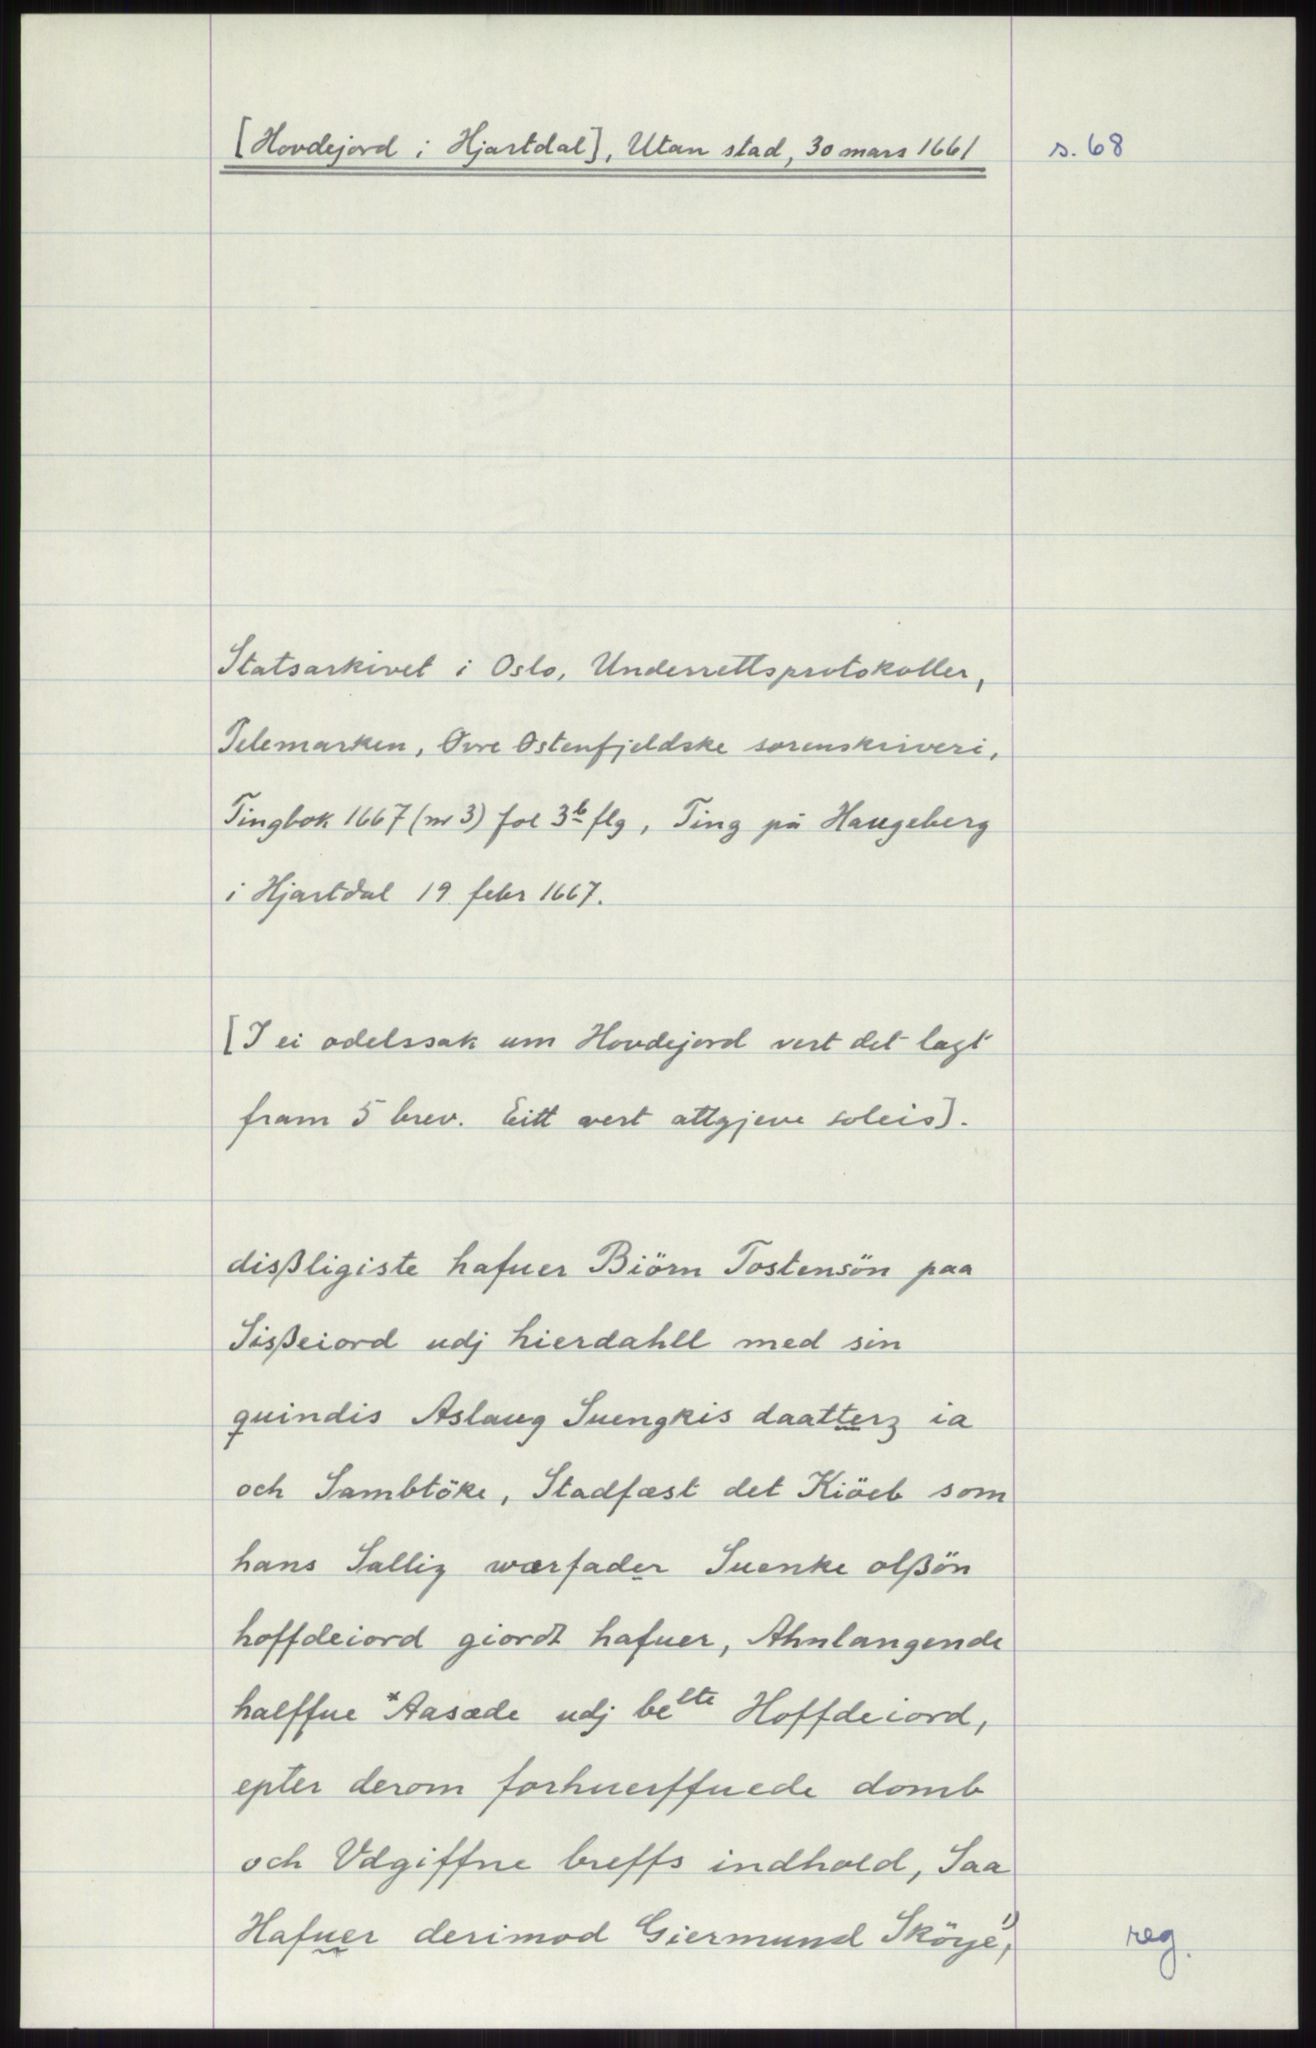 [Hovdejord i Hjartdal], Utan stad, 30 mars 1661 s. 68
Statsarkivet i Oslo, Underrettsprotokoller,
Telemarken, Øvre Østenfjeldske sorenskriveri,
Tingbok 1667 (nr 3) fol 3b flg, Ting på Haugeberg
i Hjartdal 19 febr 1667.
[I ei odelssak um Hovdejord vert det lagt
fram 5 brev. Eitt vert attgjeve soleis].
disßligiste hafuer Biörn Tostensön paa
Sisßeiord udj hierdahll med sin
quindis Aslaug Suengkis daatterz ia
och Sambtöke, Stadfæst det Kiöeb som
hans Sallig wærfader Suenke olßön
hoffdeiord giordt hafuer, Ahnlangende
halffue *Aasæde udj belte Hoffdeiord,
epter derom forhuerffuede domb
och Vdgiffne breffs indhold, Saa
Hafuer derimod Giermund Sköye1), reg.